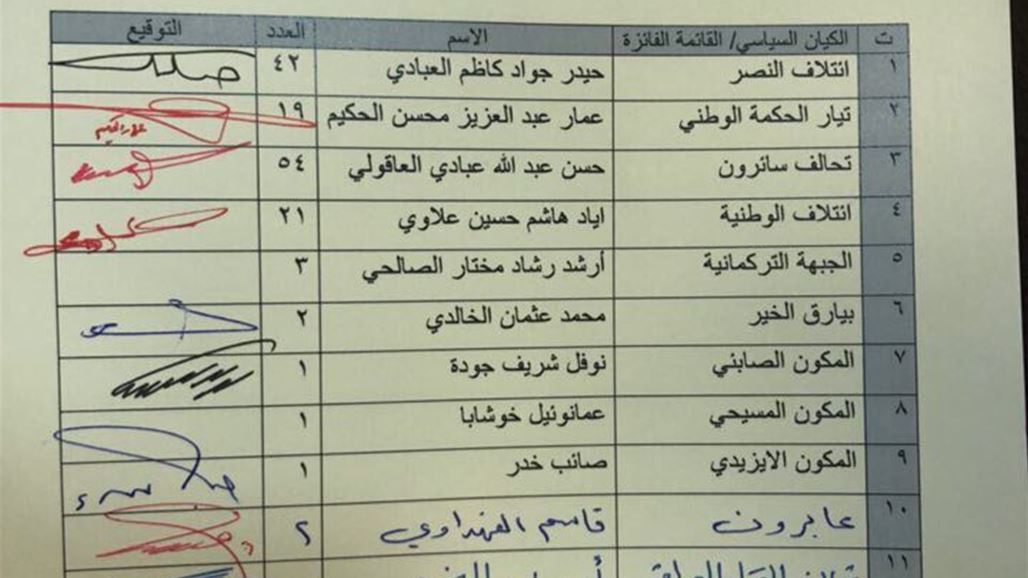 ت الكيان السياسي/ القائمة الفائزة الاسم العدد التوقيع
١ ائتلاف النصر حيدر جواد كاظم العبادي ٤٢
٢ تيار الحكمة الوطني عمار عبد العزيز محسن الحكيم ١٩
٣ تحالف سائرون حسن عبد الله عبادي العاقولي ٥٤
٤ ائتلاف الوطنية اياد هاشم حسين علاوي ٢١
٥ الجبهة التركمانية أرشد رشاد مختار الصالحي ٣
٦ بيارق الخير محمد عثمان الخالدي ٢
٧ المكون الصابئي نوفل شريف جودة ١
٨ المكون المسيحي عمانوئيل خوشابا ١
٩ المكون الايزيدي صائب خدر ١
١٠ عابرون قاسم الفهداوي ٢
١١